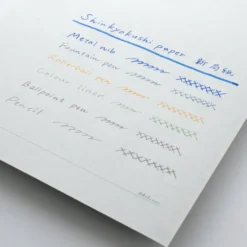 Shinkyokushi paper
Metal nib
Fountain pen
Rollerball pen
Colour liner
Ballpoint pen
Pencil